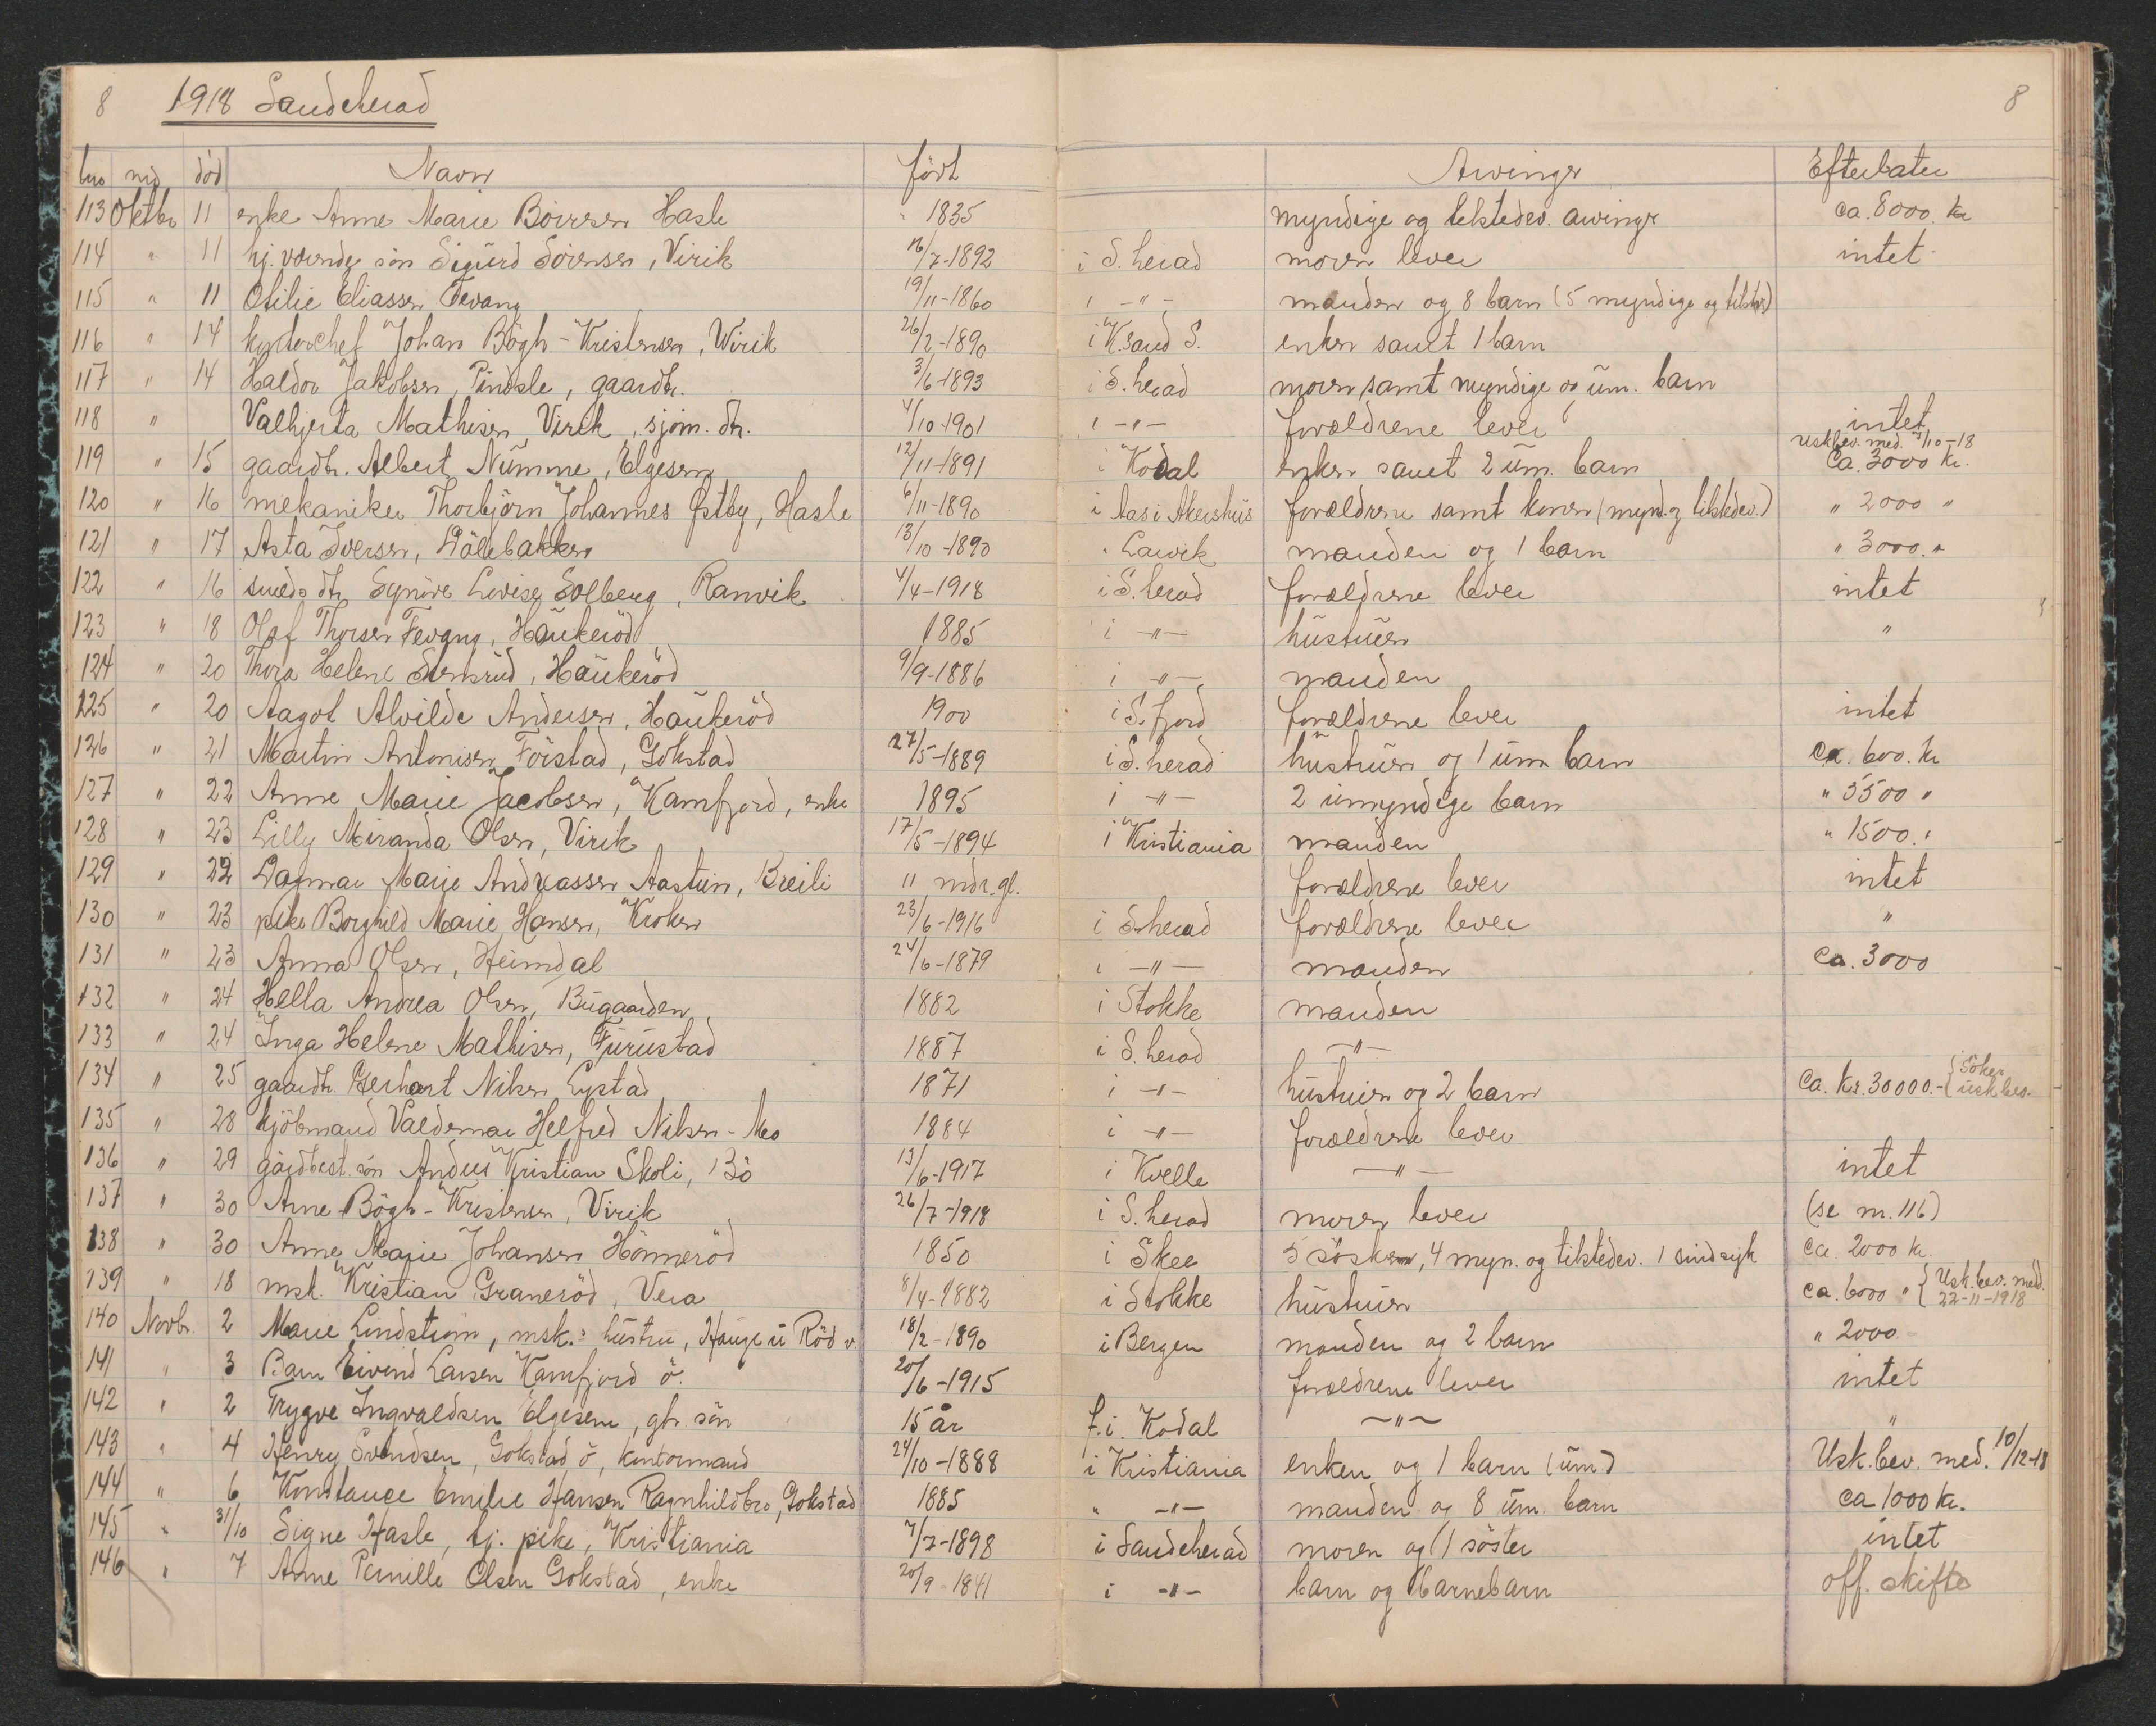 8 1918 Sandeherad 8
lno md død Navn født Arvinger Efterlater
113 Oktbr 11 enke Anne Marie Börresen Hasle " 1835 myndige og tilstedev. arvinger ca. 8000. kr
114 " 11 hj. værende sön Sigurd Sörensen, Virik 16/7-1892 i S. herad moren lever intet
115 " 11 Otilie Eliassen Fevang 19/11-1860 i -"- manden og 8 barn (5 myndige og tilstv.)
116 " 14 Johan Bögh-Kristensen, Wirik 26/2-1890 i K.sand S. enken samt 1 barn
117 " 14 Haldor Jakobsen, Pindsle, gaardbr. 3/6-1893 i S. herad moren samt myndige og um. barn
118 " Valhjerta Mathisen Virik, sjöm. dtr. 4/10-1901 i -"- forældrene lever intet
119 " 15 gaardbr. Albert Numme, Elgesem 12/11-1891 i Kodal enken samt 2 um. barn uskbev. med. 7/10-18 Ca. 3000 Kr.
120 " 16 mekaniker Thorbjörn Johannes Østby, Hasle 6/11-1890 i Aas i Akershus forældrene samt konen (mynd. og tilstedev.) " 2000 "
121 " 17 Asta Iversen, Dölebakken 13/10-1890 " Larvik manden og 1 barn " 3000. "
122 " 16 smeds dtr. Synöve Lovise Solberg, Ranvik 4/4-1918 i S. herad forældrene lever intet
123 " 18 Olaf Thorsen Fevang, Haukeröd 1885 i -"- hustruen "
124 " 20 Thora Helene Stensrud, Haukeröd 9/9-1886 i -"- manden
125 " 20 Aagot Alvilde Andersen, Haukeröd 1900 i S.fjord forældrene lever intet
126 " 21 Martin Antonisen Förstad, Gokstad 27/5-1889 i S. herad hustruen og 1 um barn ca. 600. kr
127 " 22 Anne Marie Jacobsen, Kamfjord, enke 1895 i -"- 2 umyndige barn " 5500 "
128 " 23 Lilly Miranda Olsen, Virik 17/5-1894 i Kristiania manden " 1500. "
129 " 22 Dagmar Marie Andreassen Aastun, Breili 11 mdr. gl. forældrene lever intet
130 " 23 pike Borghild Marie Hansen, Kroken 23/6-1916 i S.herad forældrene lever "
131 " 23 Anna Olsen, Heimdal 24/6-1879 i -"- manden Ca. 3000
132 " 24 Hella Andrea Olsen, Bugaarden 1882 i Stokke manden
133 " 24 Inga Helene Mathisen, Furustad 1887 i S. herad -"-
134 " 25 gaardbr. Gerhart Nilsen Lystad 1871 i -"- hustruen og 2 barn Ca. kr. 30000.- { Söker uskbev.
135 " 28 kjöbmand Valdemar Helfred Nilsen-Mo 1884 i -"- forældrene lever
136 " 29 gårdbest. sön Anders Kristian Skoli, Bö 13/6-1917 i Kvelle -"- intet
137 " 30 Arne Bögh-Kristensen, Virik 26/7-1918 i S. herad moren lever (se nr. 116)
138 " 30 Anne Marie Johansen Hönneröd 1850 i Skee 5 sösken, 4 myn. og tilstedev. 1 sindsyk Ca. 2000 kr.
139 " 18 msk. Kristian Graneröd, Vera 8/4-1882 i Stokke hustruen ca. 6000 " { Usk. bev. med. 22-11-1918
140 Novbr. 2 Marie Lindström, msk.s hustru, Hauge u Röd v. 18/2-1890 i Bergen manden og 2 barn " 2000
141 " 3 Barn Eivind Larsen Kamfjord ö. 20/6-1915 forældrene lever intet
142 " 2 Trygve Ingvaldsen Elgesem, gbr. sön 15 år f. i. Kodal -"- "
143 " 4 Henry Svendsen, Gokstad ö, kontormand 24/10-1888 i Kristiania enken og 1 barn (um) Usk. bev. med. 10/12-18
144 " 6 Konstance Emilie Hansen Ragnhildbro, Gokstad 1885 " -"- manden og 8 um. barn ca 1000 kr.
145 " 31/10 Signe Hasle, tj. pike, Kristiania 7/7-1898 i Sandeherad moren og 1 söster intet
146 " 7 Anne Pernille Olsen Gokstad, enke 20/9-1841 i -"- barn og barnebarn off. skifte